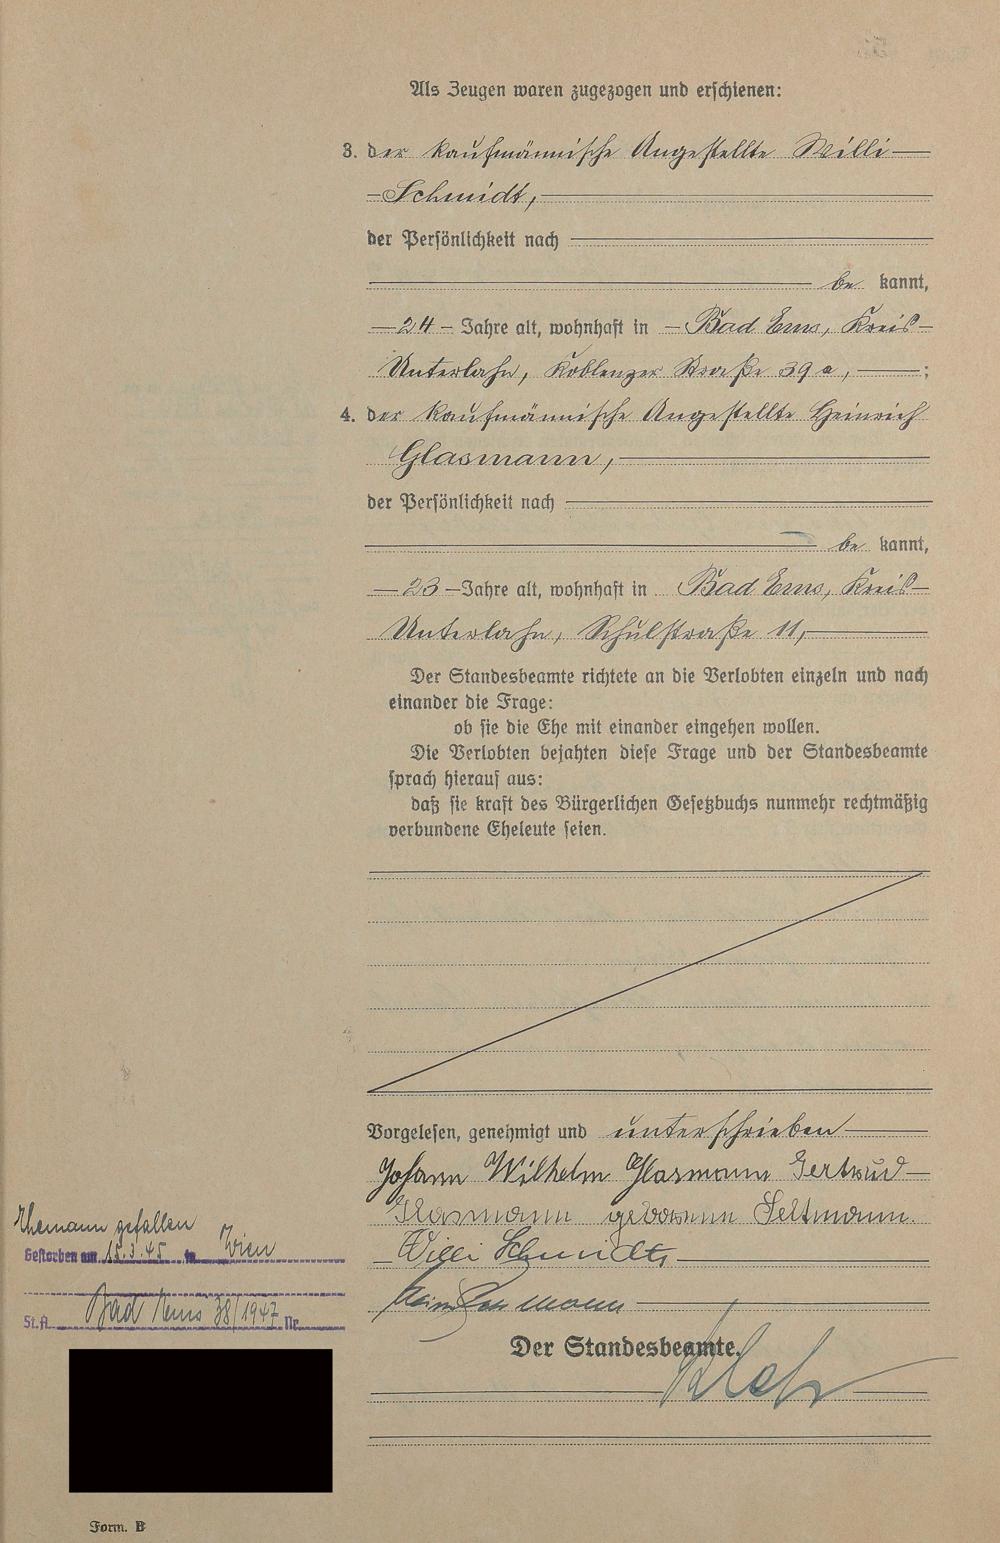 Als Zeugen waren zugezogen und erschienen:
3. der kaufmännische Angestellte Willi
Schmidt,
der Persönlichkeit nach
be kannt,
24 Jahre alt, wohnhaft in Bad Ems, Kreis
Unterlahn, Koblenzer Straße 39 a, ;
4. der kaufmännische Angestellte Heinrich
Glasmann,
der Persönlichkeit nach
be kannt,
23 Jahre alt, wohnhaft in Bad Ems, Kreis
Unterlahn, Schulstraße 11,
Der Standesbeamte richtete an die Verlobten einzeln und nach
einander die Frage:
ob sie die Ehe mit einander eingehen wollen.
Die Verlobten bejahten diese Frage und der Standesbeamte
sprach hierauf aus:
daß sie kraft des Bürgerlichen Gesetzbuchs nunmehr rechtmäßig
verbundene Eheleute seien.
Vorgelesen, genehmigt und unterschrieben
Johann Wilhelm Glasmann Gertrud
Glasmann geborene Seltmann.
Willi Schmidt,
Der Standesbeamte.
Ehemann gefallen
Gestorben am 15.3.45 in Wien
St.A. Bad Ems 38/1947 Nr.
Form. B